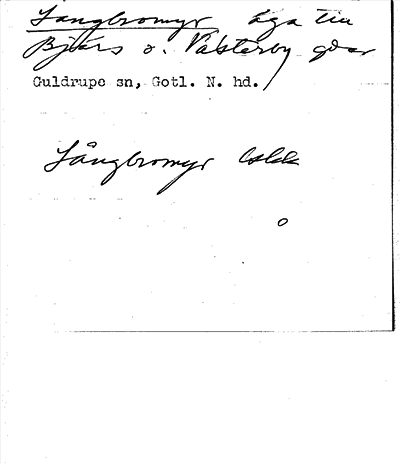 Långbromyr äga till
Bjärs o. Västerby gdar
Guldrupe sn, Gotl. N. hd.
Långbromyr